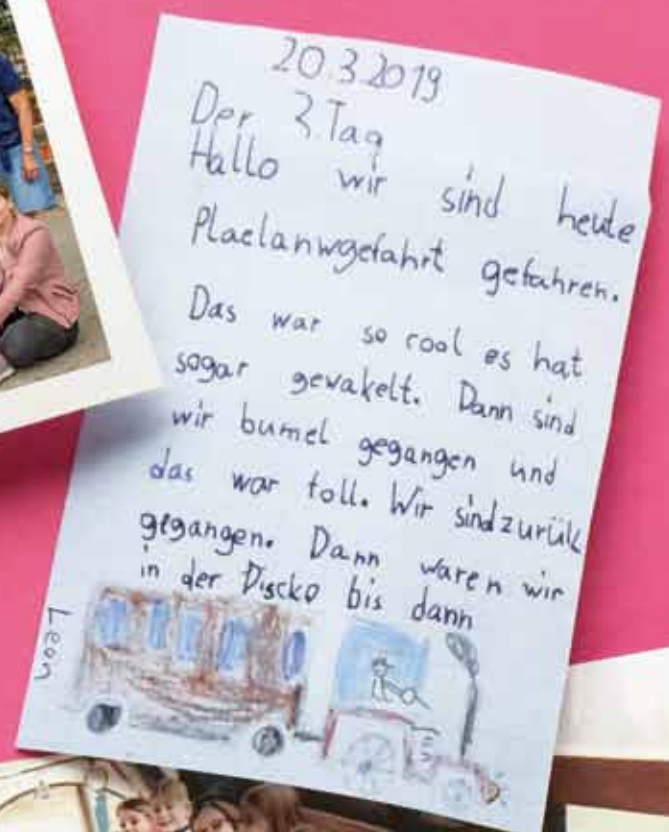 20.3.2019
Der 3.Tag
Hallo wir sind heute
Plaelanwgefahrt gefahren.
Das war so cool es hat
sogar gewakelt. Dann sind
wir bumel gegangen und
das war toll. Wir sind zurük
gegangen. Dann waren wir
in der Discko bis dann
Leon